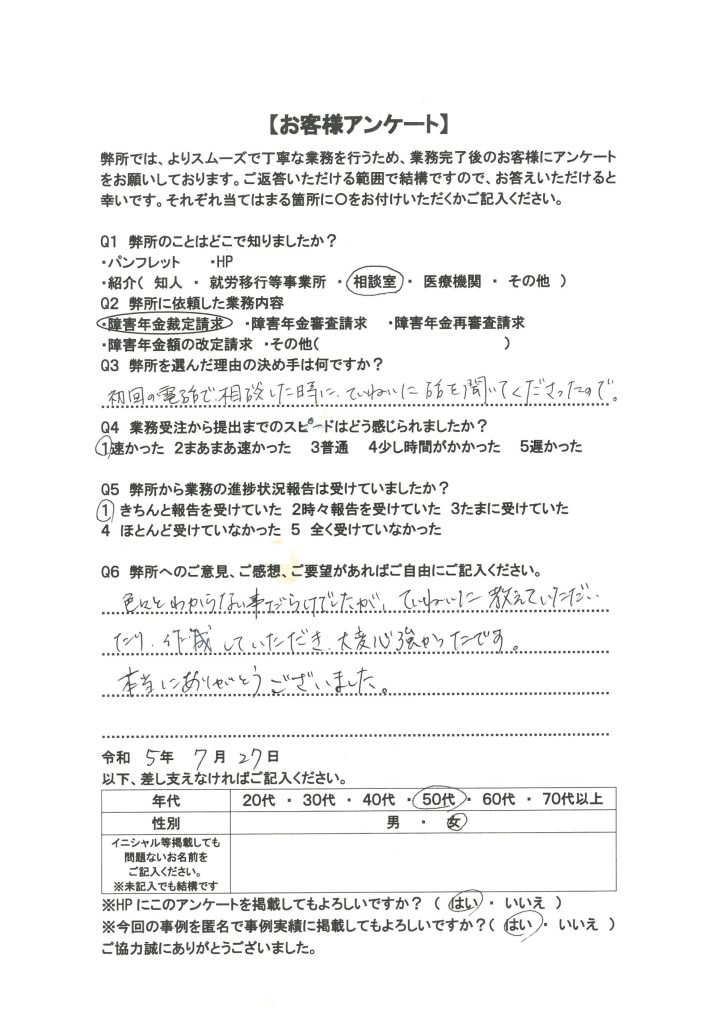 【お客様アンケート】
弊所では、よりスムーズで丁寧な業務を行うため、業務完了後のお客様にアンケート
をお願いしております。ご返答いただける範囲で結構ですので、お答えいただけると
幸いです。それぞれ当てはまる箇所に〇をお付けいただくかご記入ください。
Q1 弊所のことはどこで知りましたか？
・パンフレット ・HP
・紹介（ 知人 ・ 就労移行等事業所 ・ 相談室 ・ 医療機関 ・ その他 ）
Q2 弊所に依頼した業務内容
・障害年金裁定請求 ・障害年金審査請求 ・障害年金再審査請求
・障害年金額の改定請求 ・その他（ ）
Q3 弊所を選んだ理由の決め手は何ですか？
初回の電話で相談した時に、ていねいに話を聞いてくださったので。
Q4 業務受注から提出までのスピードはどう感じられましたか？
1速かった 2まあまあ速かった 3普通 4少し時間がかかった 5遅かった
Q5 弊所から業務の進捗状況報告は受けていましたか？
1 きちんと報告を受けていた 2時々報告を受けていた 3たまに受けていた
4 ほとんど受けていなかった 5 全く受けていなかった
Q6 弊所へのご意見、ご感想、ご要望があればご自由にご記入ください。
色々とわからない事だらけでしたが、ていねいに教えていただい
たり、作成していただき、大変心強かったです。
本当にありがとうございました。
令和 5年 7月 27日
以下、差し支えなければご記入ください。
年代 20代 ・ 30代 ・ 40代 ・ 50代 ・ 60代 ・ 70代以上
性別 男 ・ 女
イニシャル等掲載しても
問題ないお名前を
ご記入ください。
※未記入でも結構です
※HPにこのアンケートを掲載してもよろしいですか？（ はい ・ いいえ ）
※今回の事例を匿名で事例実績に掲載してもよろしいですか？（ はい ・ いいえ ）
ご協力誠にありがとうございました。